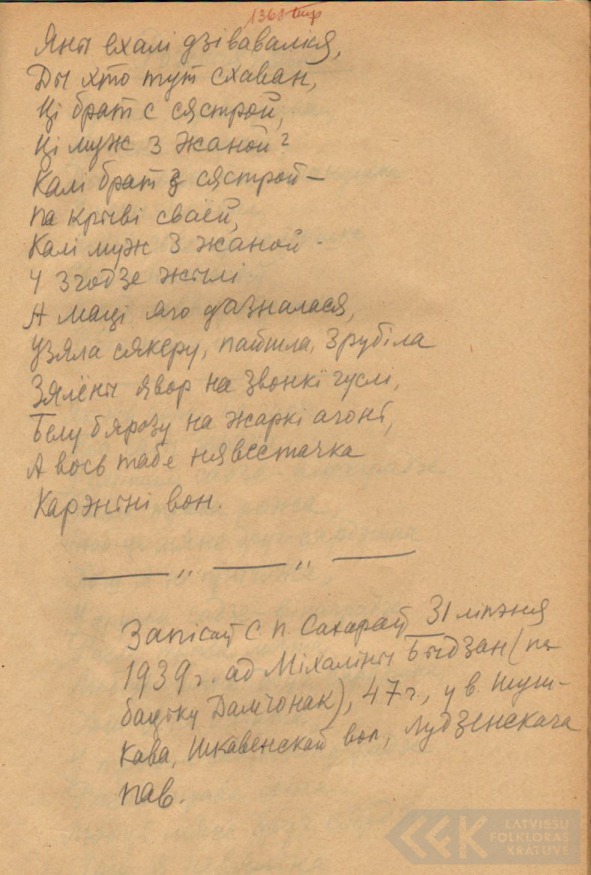 1368
Яны ехалі дзіваваліся,
Ды хто тут схаван,
Ці брат с сястрой,
Ці муж з жаной?
Калі брат з сястрой —
па крыві сваёй,
Калі муж з жаной -
У згодзе жылі
А маці яго дазналася,
Узяла сякеру, пайшла, зрубіла
Зялёны явор на звонкі гуслі,
Белу бярозу на жаркі агонь,
А вось табе нявестачка
Карэньні вон.
Запісаў С П. Сахараў 31 ліпэня
1939 г. ад Міхаліны Быдзан (па-
бацьку Дамчонак), 47 г., у в. Шуш-
кава, Шкавенскай вол, Лудзенскага
пав.
LATVIEŠU
FOLKLORAS
KRĀTUVE